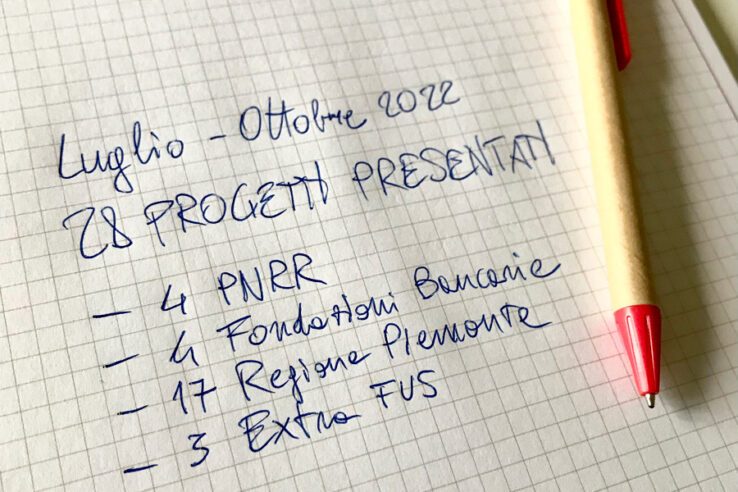 Luglio - Ottobre 2022
28 PROGETTI PRESENTATI
- 4 PNRR
- 4 Fondazioni Bancarie
- 17 Regione Piemonte
- 3 Extra FUS